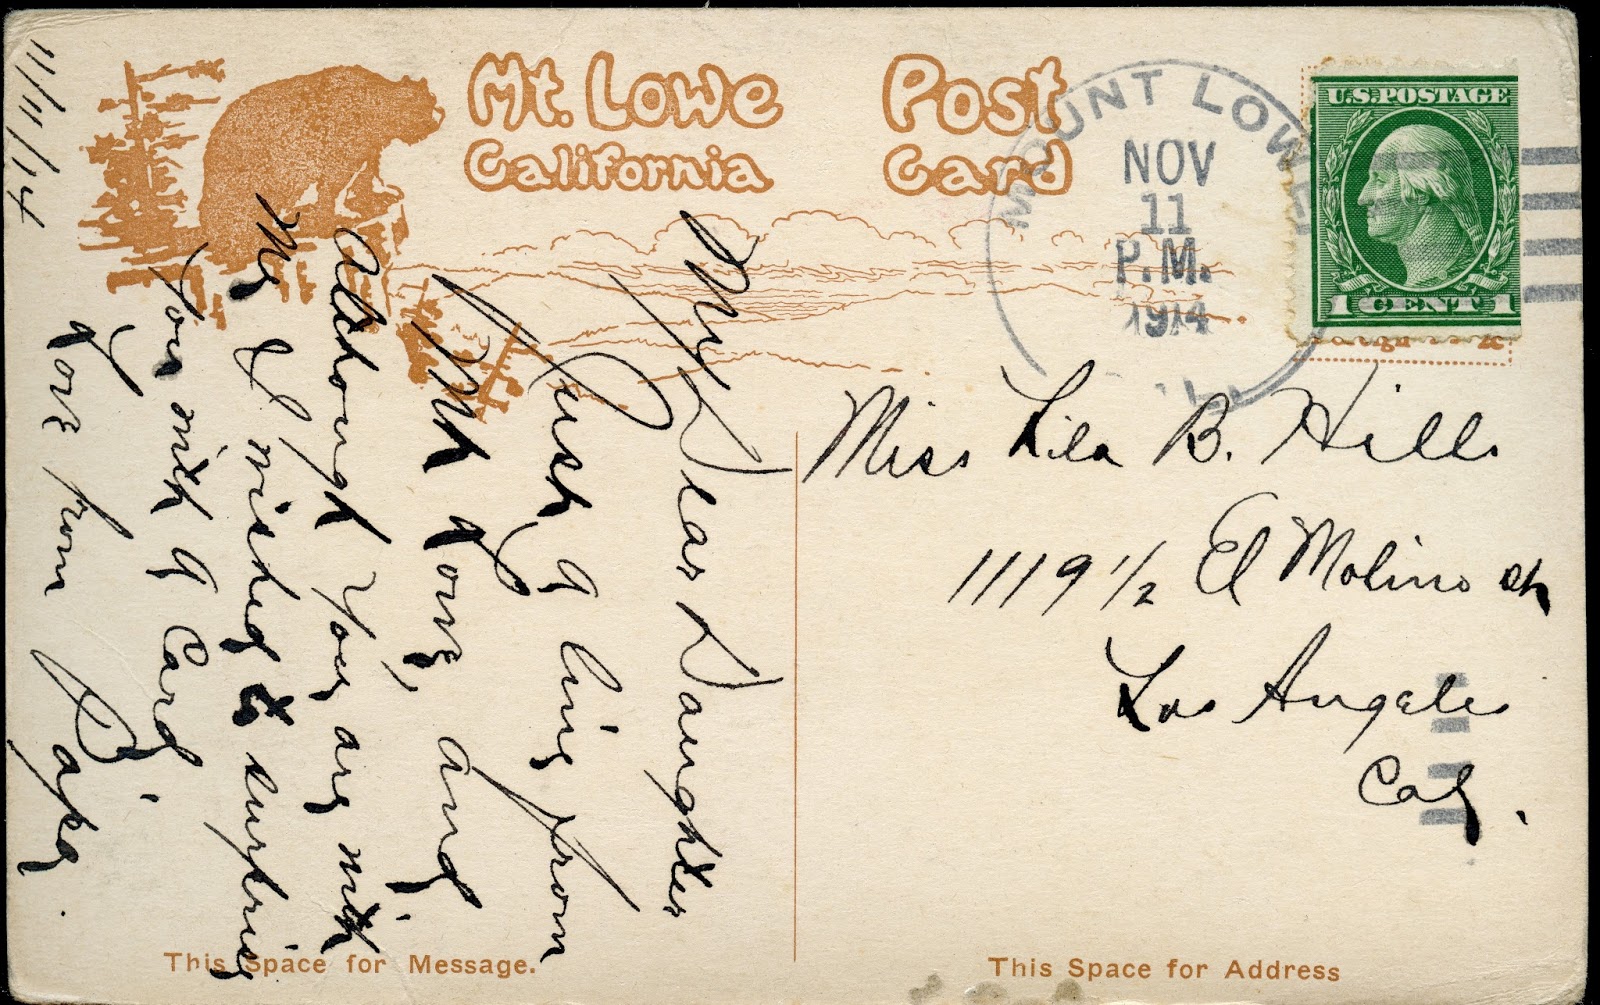 Mt. Lowe
California
Post
Card
MOUNT LOWE
NOV
11
P.M.
1914
CAL.
U.S. POSTAGE
1 CENT 1
11/11/14
My Dear Daughter
Just a line from
Mt Lowe, and
Although you are with
Me I wished to surprise
you with a Card
Love from Papa.
Miss Lila B. Hill
1119 1/2 El Molino st
Los Angeles
Cal.
This Space for Message.
This Space for Address